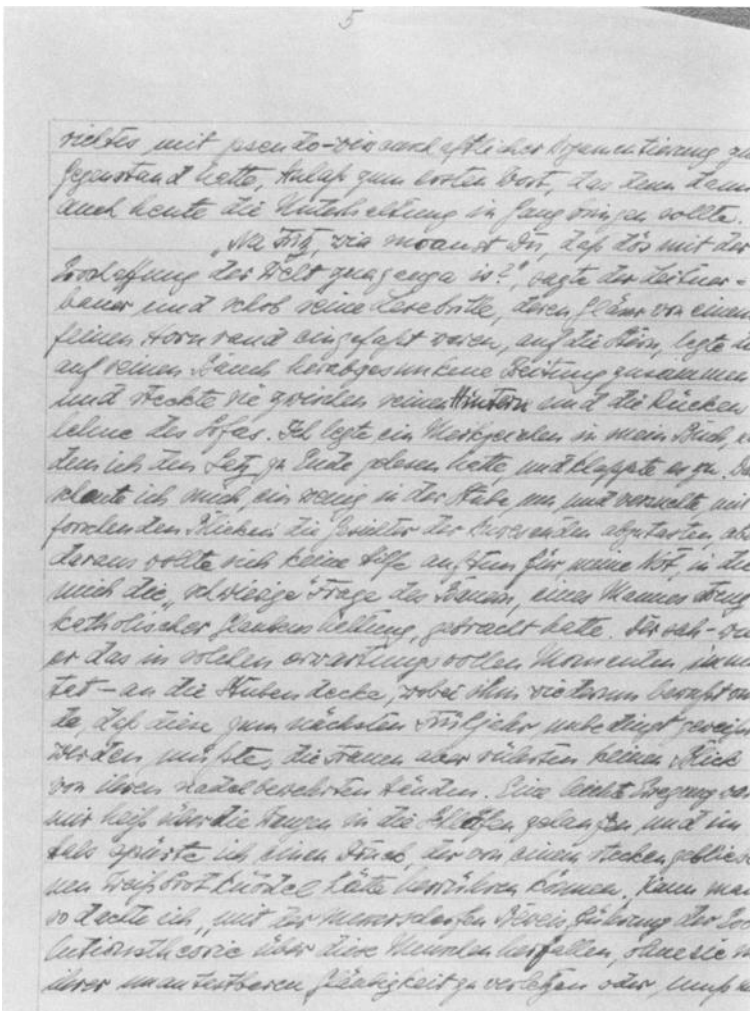 5
richtes mit pseudo-wissenschaftlicher Argumentierung zu
Gegenstand hatte, Anlaß zum ersten Wort, das denn dann
auch heute die Unterhaltung in Gang bringen sollte.
„Na Fritz, wia moanst Du, daß dös mit der
Erschaffung der Welt zuaganga is?", sagte der Leitner-
bauer und schob seine Lesebrille, deren Gläser von einem
feinen Hornrand eingefaßt waren, auf die Stirn, legte
auf seinen Bauch herabgesunkene Zeitung zusammen
und steckte sie zwischen seinen Hintern und die Rücken
lehne des Sofas. Ich legte ein Merkzeichen in mein Buch,
dem ich den Satz zu Ende gelesen hatte, und klappte es zu.
schaute ich mich ein wenig in der Stube um und versuchte, mit
forschenden Blicken die Gesichter der Anwesenden abzutasten, abe
daraus wollte sich keine Hilfe auftun für meine Not, in die
mich die „schwierige" Frage des Bauern, eines Mannes streng
katholischer Glaubenshaltung, gebracht hatte. Der sah - wie
er das in solchen erwartungsvollen Momenten imme
tat - an die Stubendecke, wobei ihm wiederum bewußt wu
de, daß diese zum nächsten Frühjahr unbedingt geweiß
werden müßte, die Frauen aber rührten keinen Blick
von ihren nadelbewehrten Händen. Eine leichte Erregung wa
mir heiß über die Wangen in die Schläfen gelangen und im
Hals spürte ich einen Druck, der von einem steckengebliebe
nen Weißbrotknödel hätte herrühren können. Kann man
so dachte ich, mit der messerscharfen Beweisführung der Evo
lutionstheorie über diese Menschen herfallen, ohne sie in
ihrer unantastbaren Gläubigkeit zu verletzen oder, muß